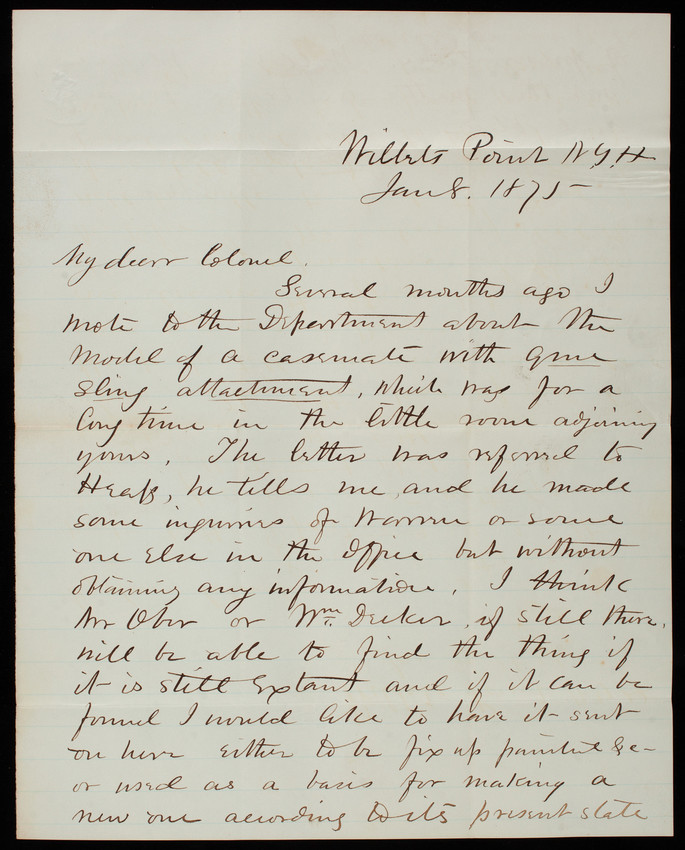 Willets Point N.Y.H.
Jan 8. 1875
My dear Colonel.
Several months ago I
wrote to the Department about the
model of a casemate with gun
sling attachment, which was for a
long time in the little room adjoining
yours. The letter was referred to
Heap, he tells me, and he made
some inquiries of Warren or some
one else in the office but without
obtaining any information. I think
Mr Ober or Wm. Decker, if still there,
will be able to find the thing if
it is still extant and if it can be
found I would like to have it sent
on here either to be fix up painted &c
or used as a basis for making a
new one according to its present state